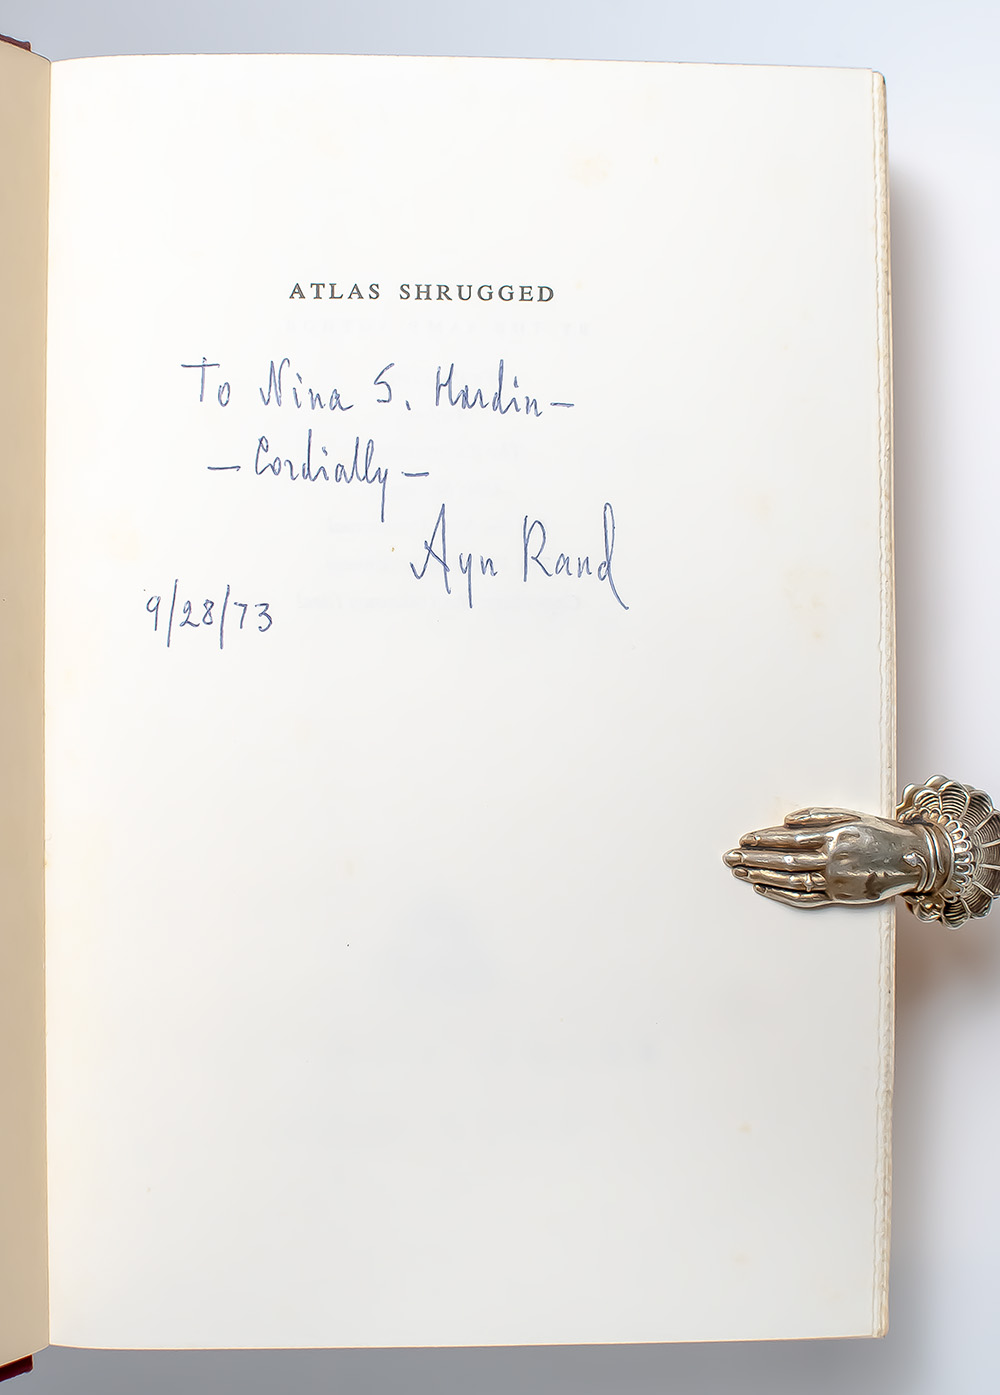 ATLAS SHRUGGED
To Nina S. Hardin—
— Cordially —
Ayn Rand
9/28/73